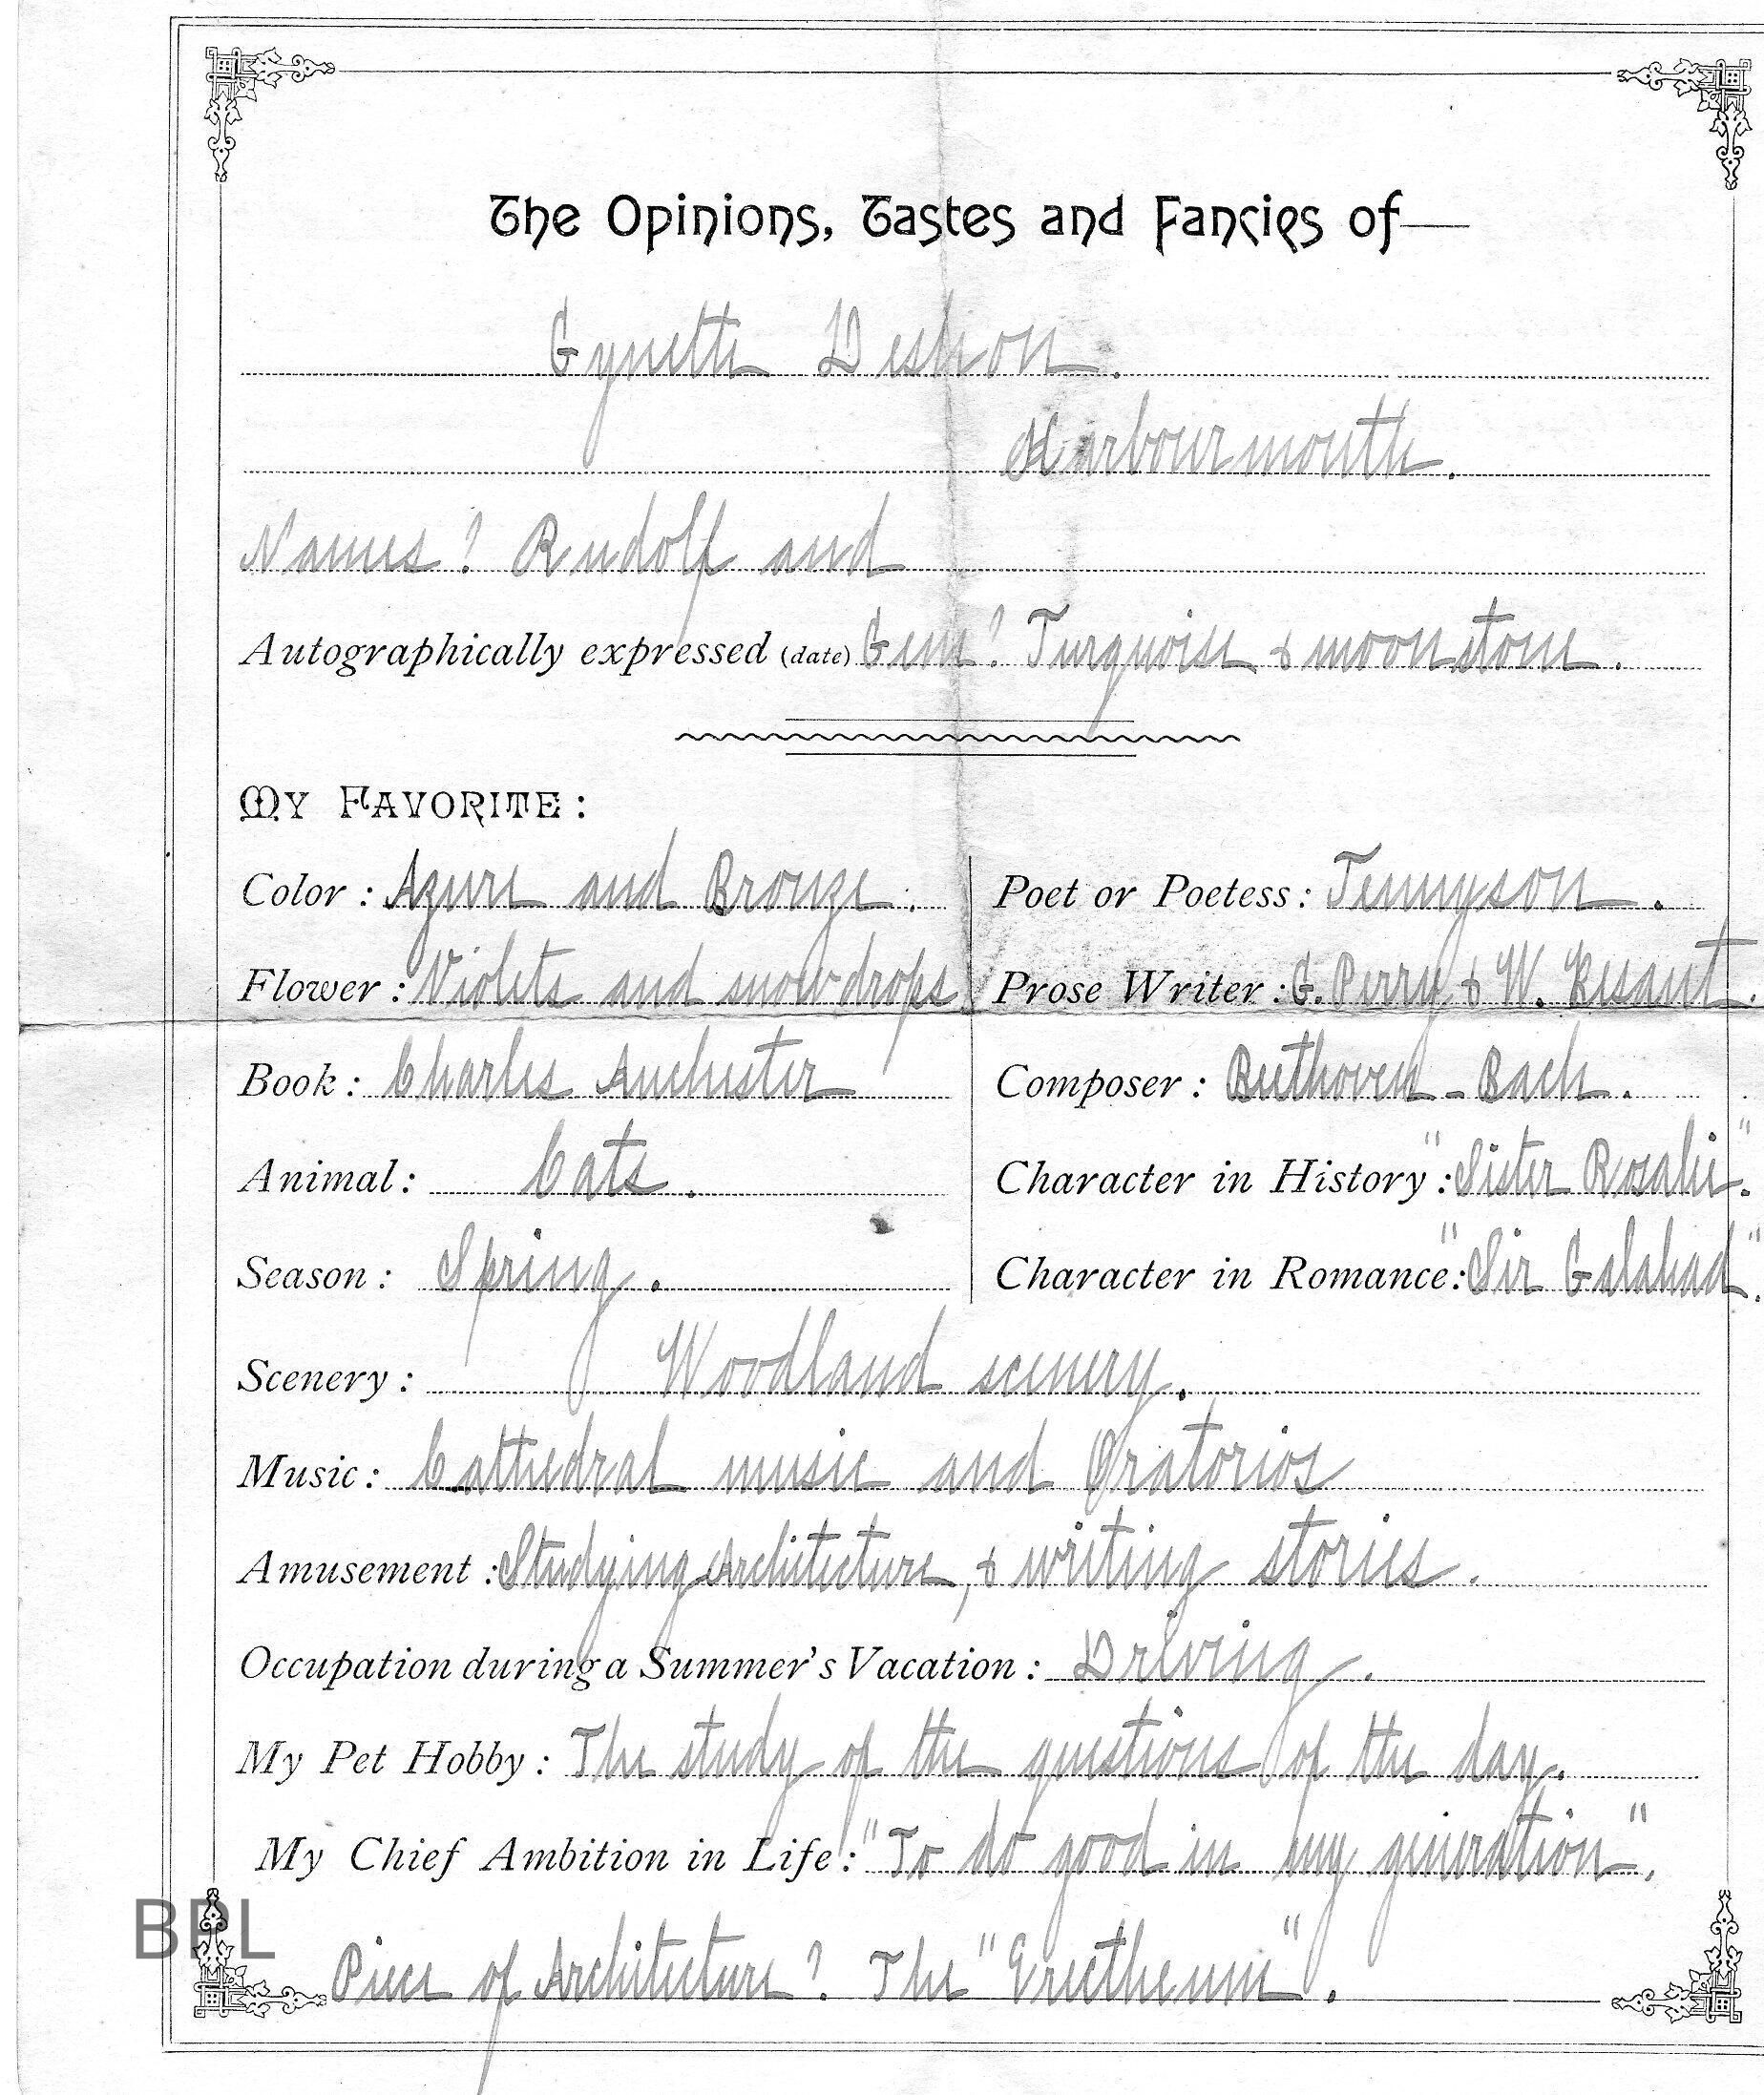 The Opinions, Tastes and Fancies of—
Gynette Deshon.
Harbourmouth.
Names? Rudolf and
Autographically expressed (date) Gem? Turquoise & moonstone.
MY FAVORITE:
Color: Azure and Bronze.
Flower: Violets and snowdrops
Book: Charles Auchester
Animal: Cats.
Season: Spring.
Poet or Poetess: Tennyson.
Prose Writer: G. Perry & W. Besant.
Composer: Beethoven - Bach.
Character in History: "Sister Rosalie".
Character in Romance: "Sir Galahad".
Scenery: Woodland scenery.
Music: Cathedral music and Oratorios
Amusement: Studying Architecture, & writing stories.
Occupation during a Summer's Vacation: Driving.
My Pet Hobby: The study of the questions of the day.
My Chief Ambition in Life: "To do good in my generation".
BPL
Piece of Architecture? The "Erectheum".